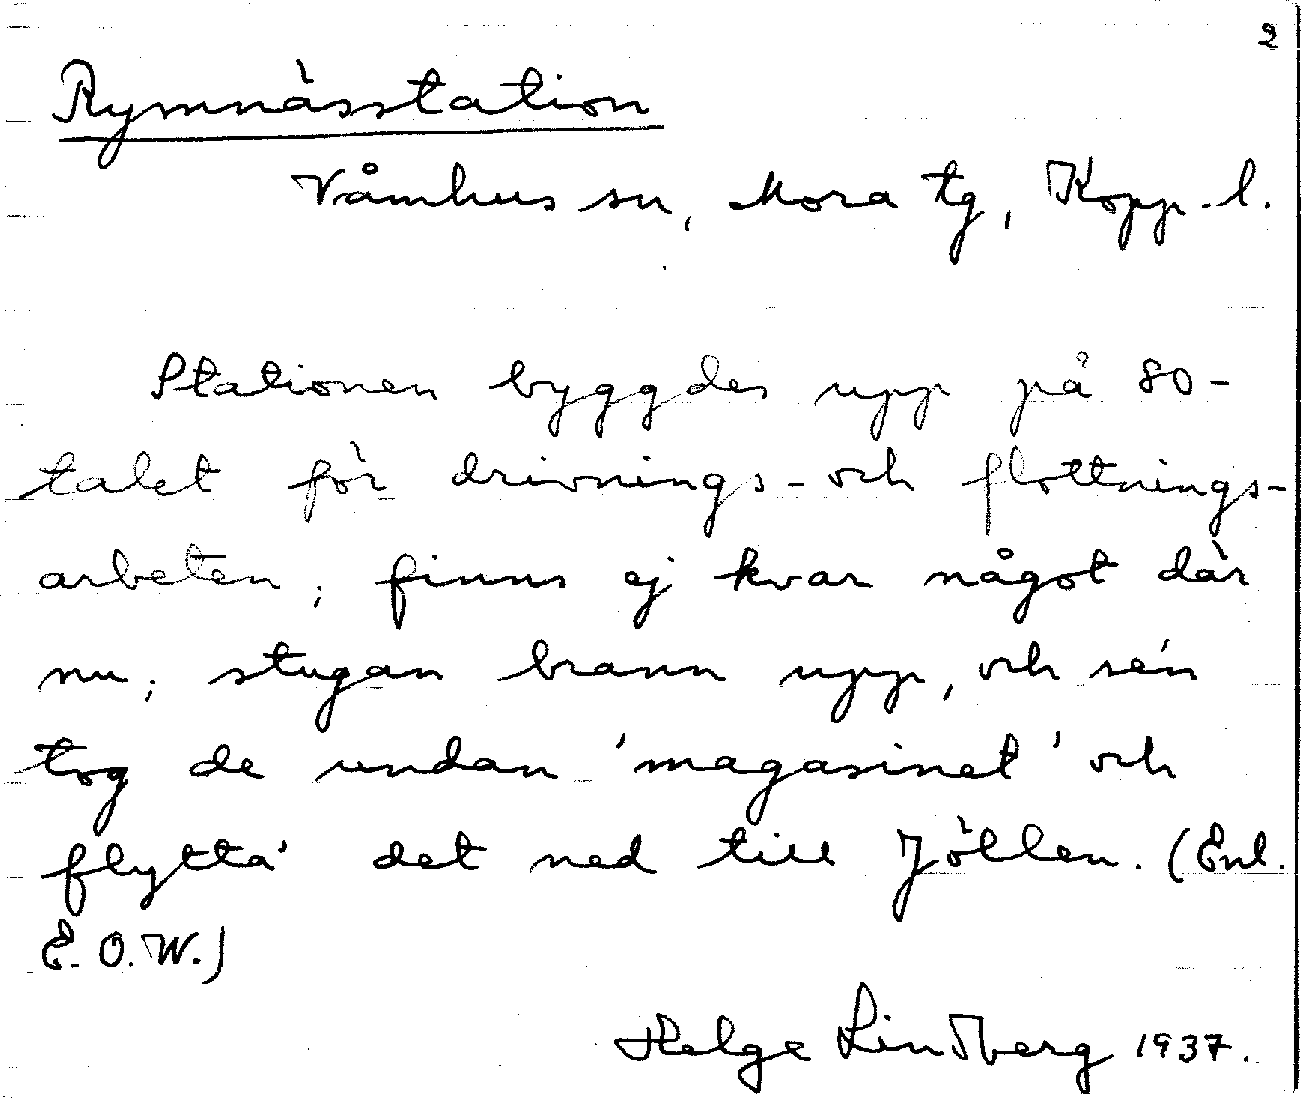 2
Rymnässtation
Våmhus sn, Mora tg, Kopp. l.
Stationen byggdes upp på 80-
talet för drivnings- och flottnings-
arbeten; finns ej kvar något där
nu; stugan brann upp, och se'n
tog de undan 'magasinet' och
flytta' det ned till Jöllen. (Enl.
E. O. W.)
Helge Lindberg 1937.